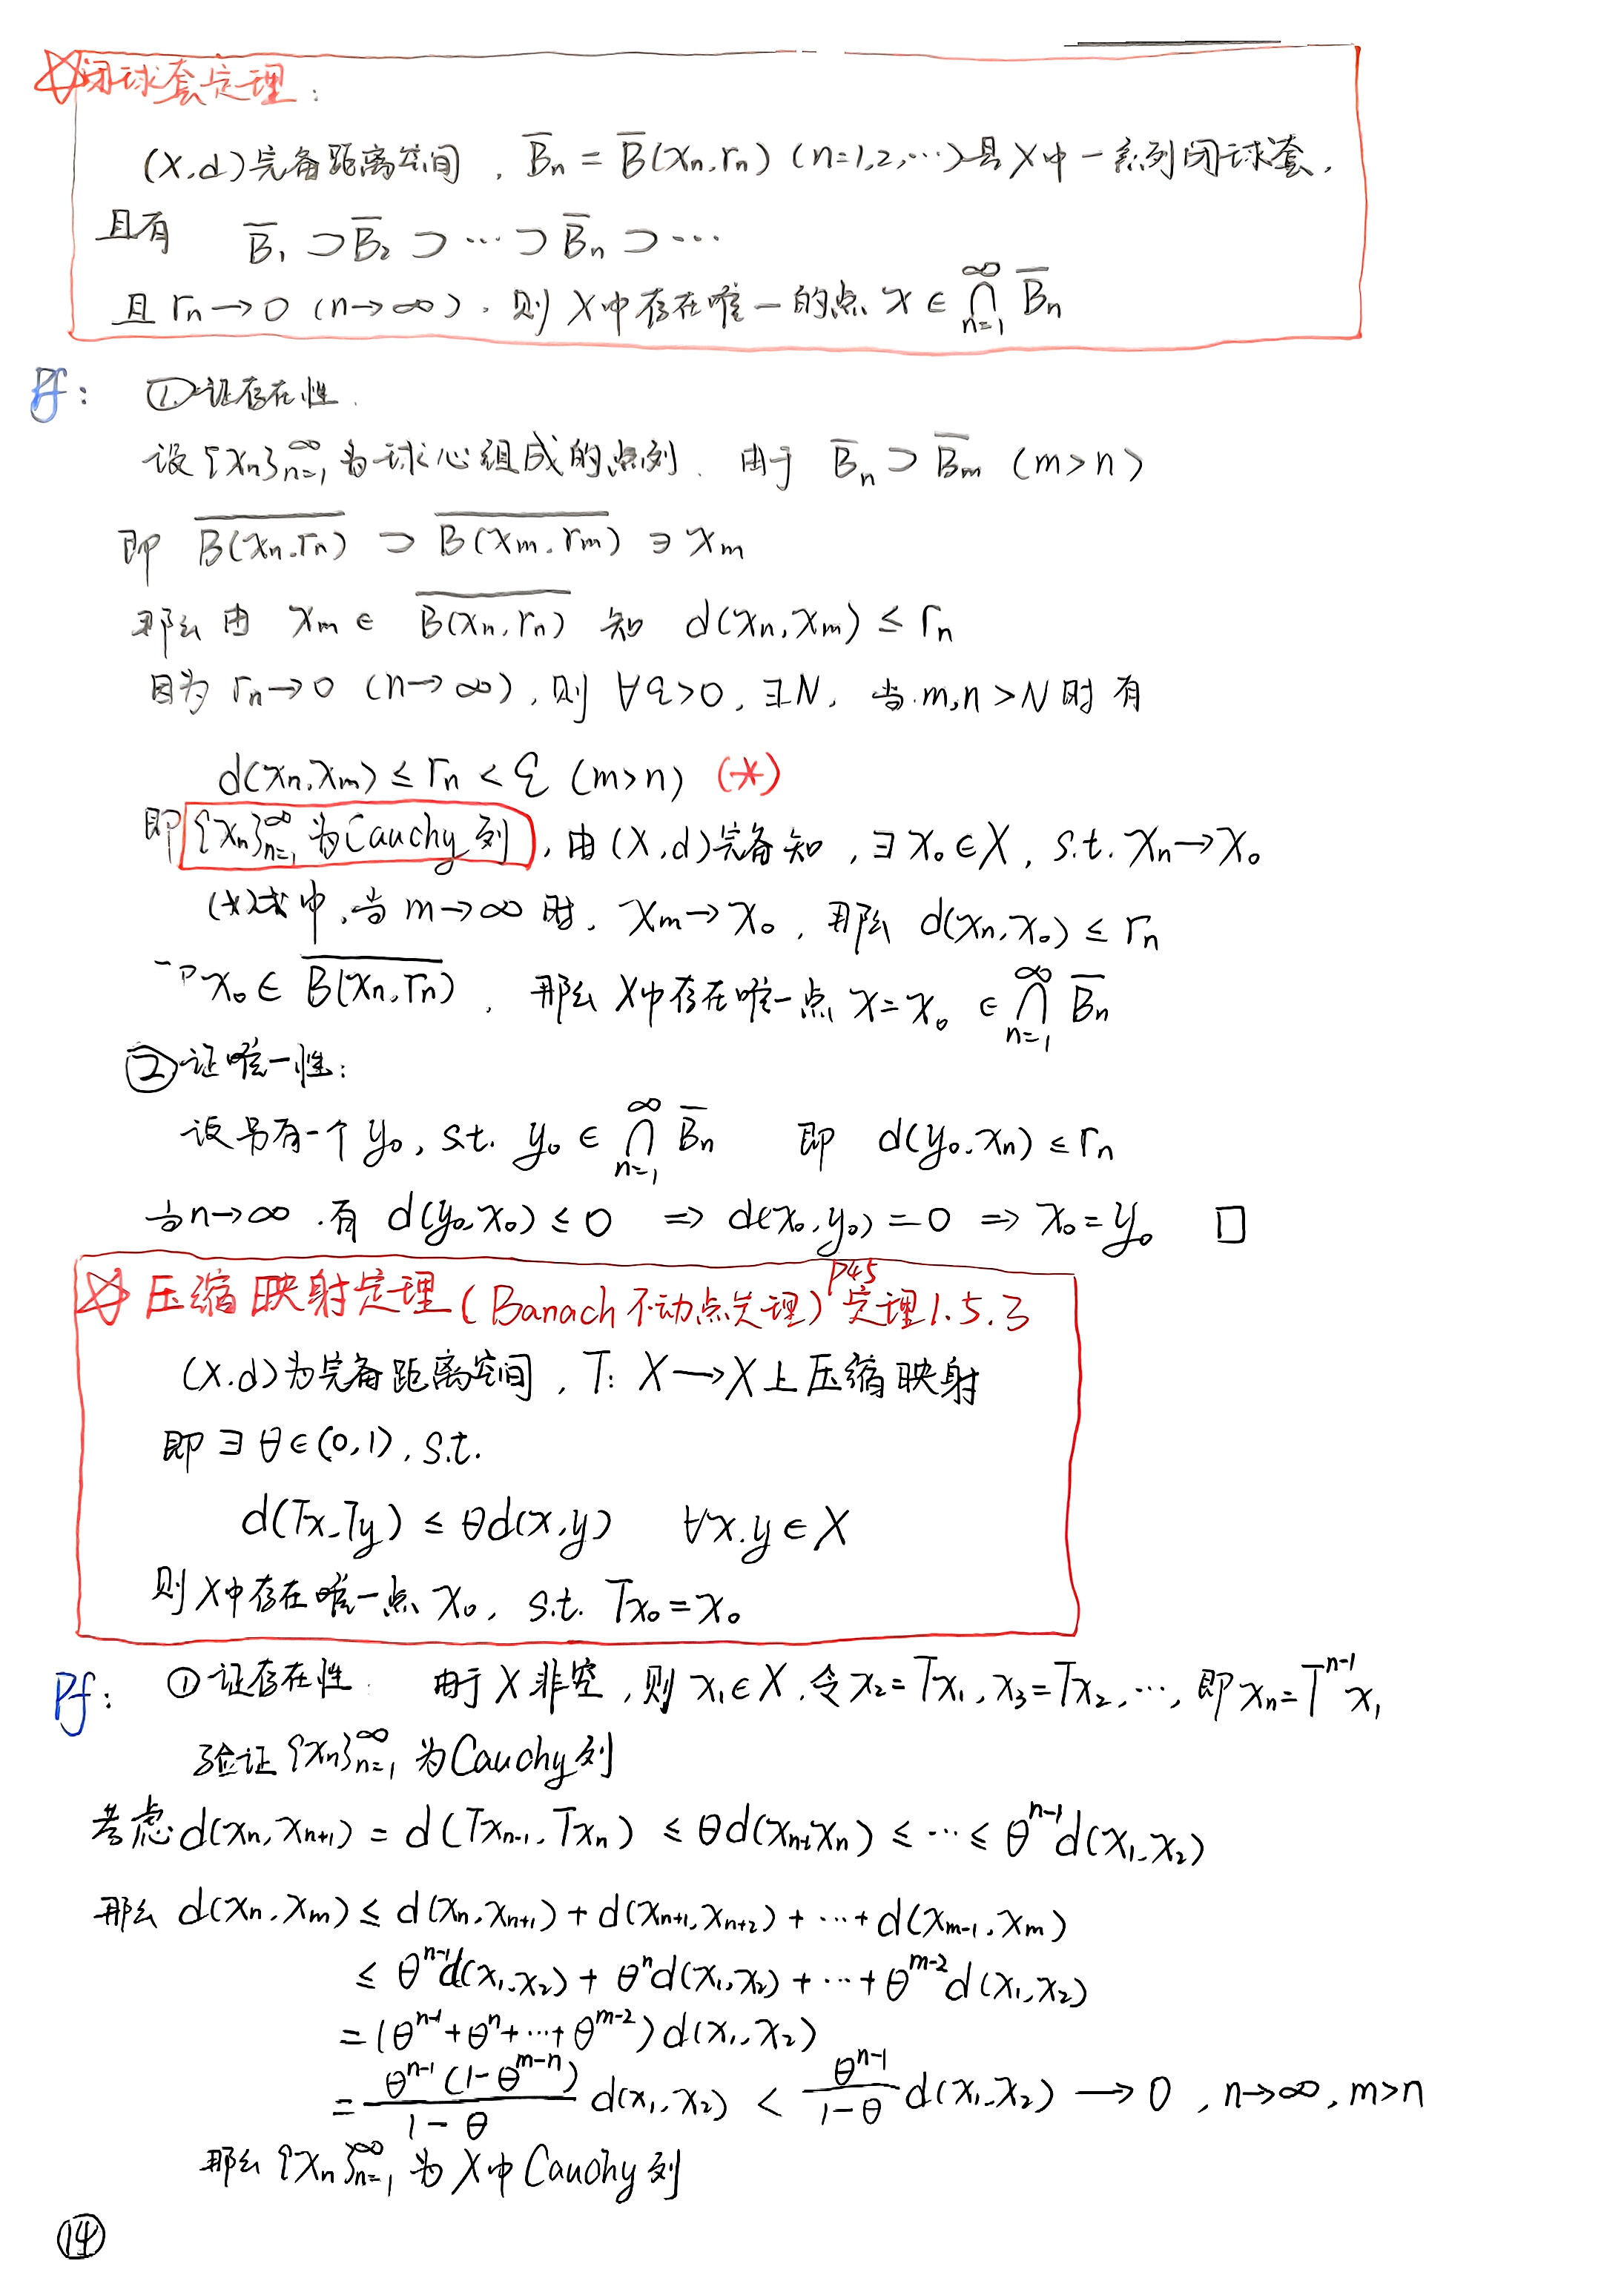 ☆闭球套定理:
(X,d)完备距离空间, B̅ₙ = B̅(xₙ,rₙ) (n=1,2,⋯)是X中一系列闭球套,
且有 B̅₁ ⊃ B̅₂ ⊃ ⋯ ⊃ B̅ₙ ⊃ ⋯
且 rₙ→0 (n→∞). 则 X中存在唯一的点 x ∈ ⋂_{n=1}^{∞} B̅ₙ
Pf: ①证存在性.
设{xₙ}_{n=1}^{∞}为球心组成的点列. 由于 B̅ₙ ⊃ B̅ₘ (m>n)
即 \overline{B(xₙ,rₙ)} ⊃ \overline{B(xₘ,rₘ)} ∋ xₘ
那么由 xₘ ∈ \overline{B(xₙ,rₙ)} 知 d(xₙ,xₘ) ≤ rₙ
因为 rₙ→0 (n→∞), 则 ∀ε>0, ∃N, 当 m,n>N 时有
d(xₙ,xₘ) ≤ rₙ < ε (m>n) (*)
即{xₙ}_{n=1}^{∞}为Cauchy列, 由(X,d)完备知, ∃x₀∈X, s.t. xₙ→x₀
(*)式中,当 m→∞ 时, xₘ→x₀, 那么 d(xₙ,x₀) ≤ rₙ
x₀ ∈ \overline{B(xₙ,rₙ)}, 那么 X中存在唯一点 x=x₀ ∈ ⋂_{n=1}^{∞} B̅ₙ
②证唯一性:
设另有一个 y₀, s.t. y₀ ∈ ⋂_{n=1}^{∞} B̅ₙ 即 d(y₀,xₙ) ≤ rₙ
当n→∞.有 d(y₀,x₀) ≤ 0 ⇒ d(x₀,y₀)=0 ⇒ x₀=y₀ □
☆压缩映射定理(Banach不动点定理) P45 定理1.5.3
(X,d)为完备距离空间, T: X→X上压缩映射
即∃θ∈(0,1), s.t.
d(Tx,Ty) ≤ θd(x,y) ∀x,y∈X
则X中存在唯一点 x₀, s.t. Tx₀=x₀
Pf: ①证存在性. 由于X非空, 则 x₁∈X, 令 x₂=Tx₁, x₃=Tx₂, ⋯, 即 xₙ=Tⁿ⁻¹x₁
验证{xₙ}_{n=1}^{∞}为Cauchy列
考虑d(xₙ,xₙ₊₁) = d(Txₙ₋₁,Txₙ) ≤ θd(xₙ₋₁,xₙ) ≤ ⋯ ≤ θⁿ⁻¹d(x₁,x₂)
那么 d(xₙ,xₘ) ≤ d(xₙ,xₙ₊₁) + d(xₙ₊₁,xₙ₊₂) + ⋯ + d(xₘ₋₁,xₘ)
≤ θⁿ⁻¹d(x₁,x₂) + θⁿd(x₁,x₂) + ⋯ + θ^{m-2}d(x₁,x₂)
= (θⁿ⁻¹+θⁿ+⋯+θ^{m-2})d(x₁,x₂)
= \frac{θ^{n-1}(1-θ^{m-n})}{1-θ} d(x₁,x₂) < \frac{θ^{n-1}}{1-θ} d(x₁,x₂) → 0, n→∞, m>n
那么{xₙ}_{n=1}^{∞}为X中Cauchy列
⑭